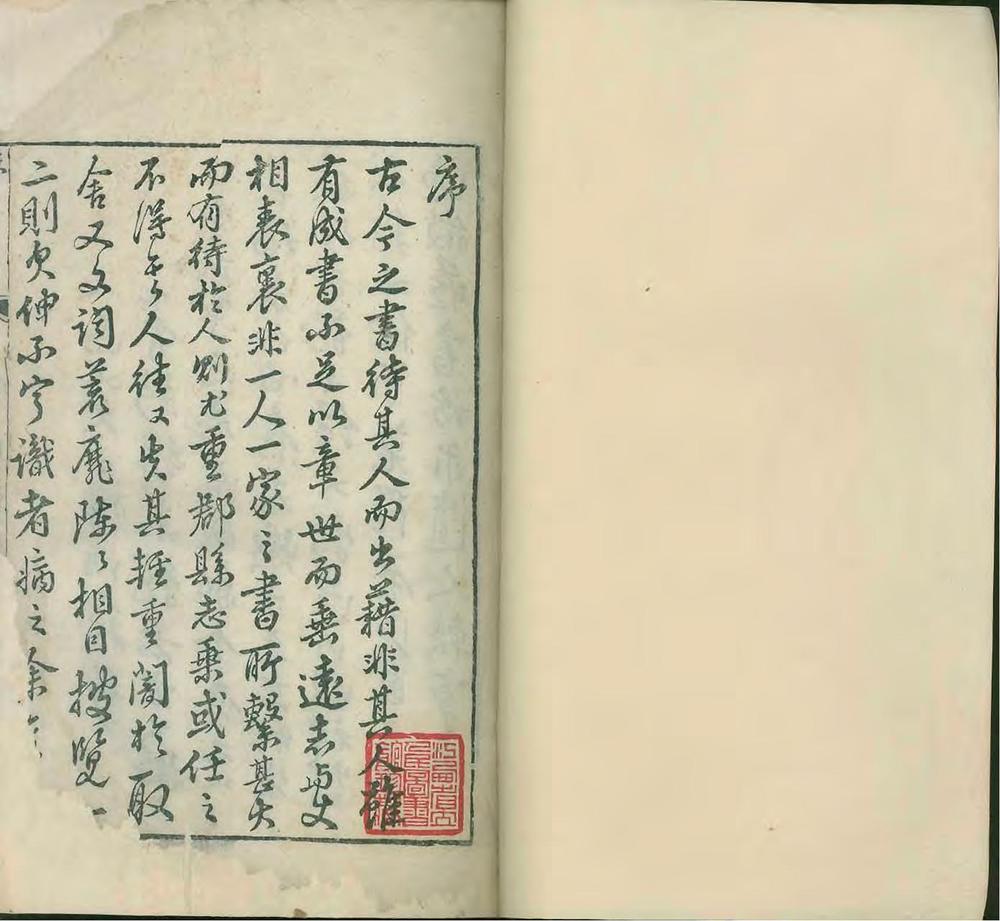 序
古今之書待其人而出藉非其人雖
有成書不足以章世而垂遠志與史
相表裏非一人一家之書所繫甚大
而有待於人則尤重郡縣志乗或任之
不得其人往又失其輕重闇於取
舍又文詞蕪厖陈々相因披覧一
二則欠伸不寧識者病之余